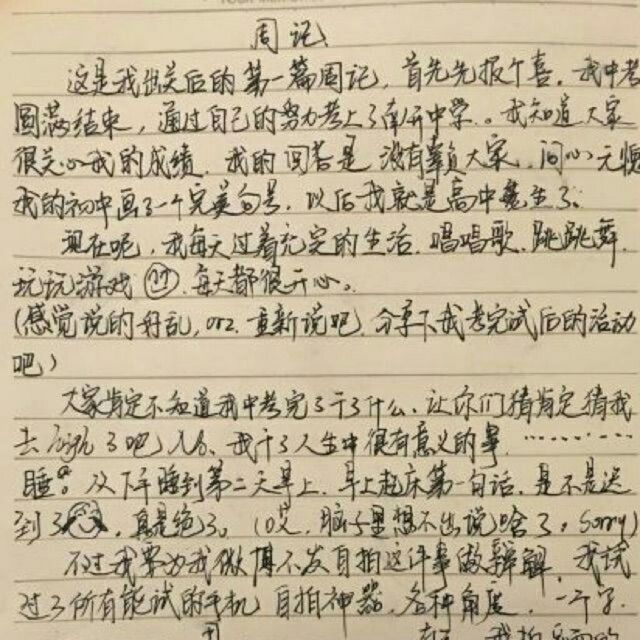 周记
这是我出关后的第一篇周记,首先先报个喜,我中考
圆满结束,通过自己的努力考上了南开中学。我知道大家
很关心我的成绩,我的回答是 没有辜负大家,问心无愧
我的初中画了一个完美句号,以后我就是高中生了。
现在呢,我每天过着充实的生活,唱唱歌,跳跳舞,
玩玩游戏,每天都很开心。
(感觉说的好乱,orz,重新说吧,分享下我考完试后的活动
吧)
大家肯定不知道我中考完了干了什么,让你们猜肯定猜我
去 了吧,我干了人生中很有意义的事………
睡。从下午睡到第二天早上,早上起床第一句话,是不是迟
到了,真是绝了。(哎,脑子里想不出说啥了,sorry)
不过我要为我微博不发自拍这件事做辩解,我试
过了所有能试的手机,自拍神器,各种角度,一个字
我拍出的